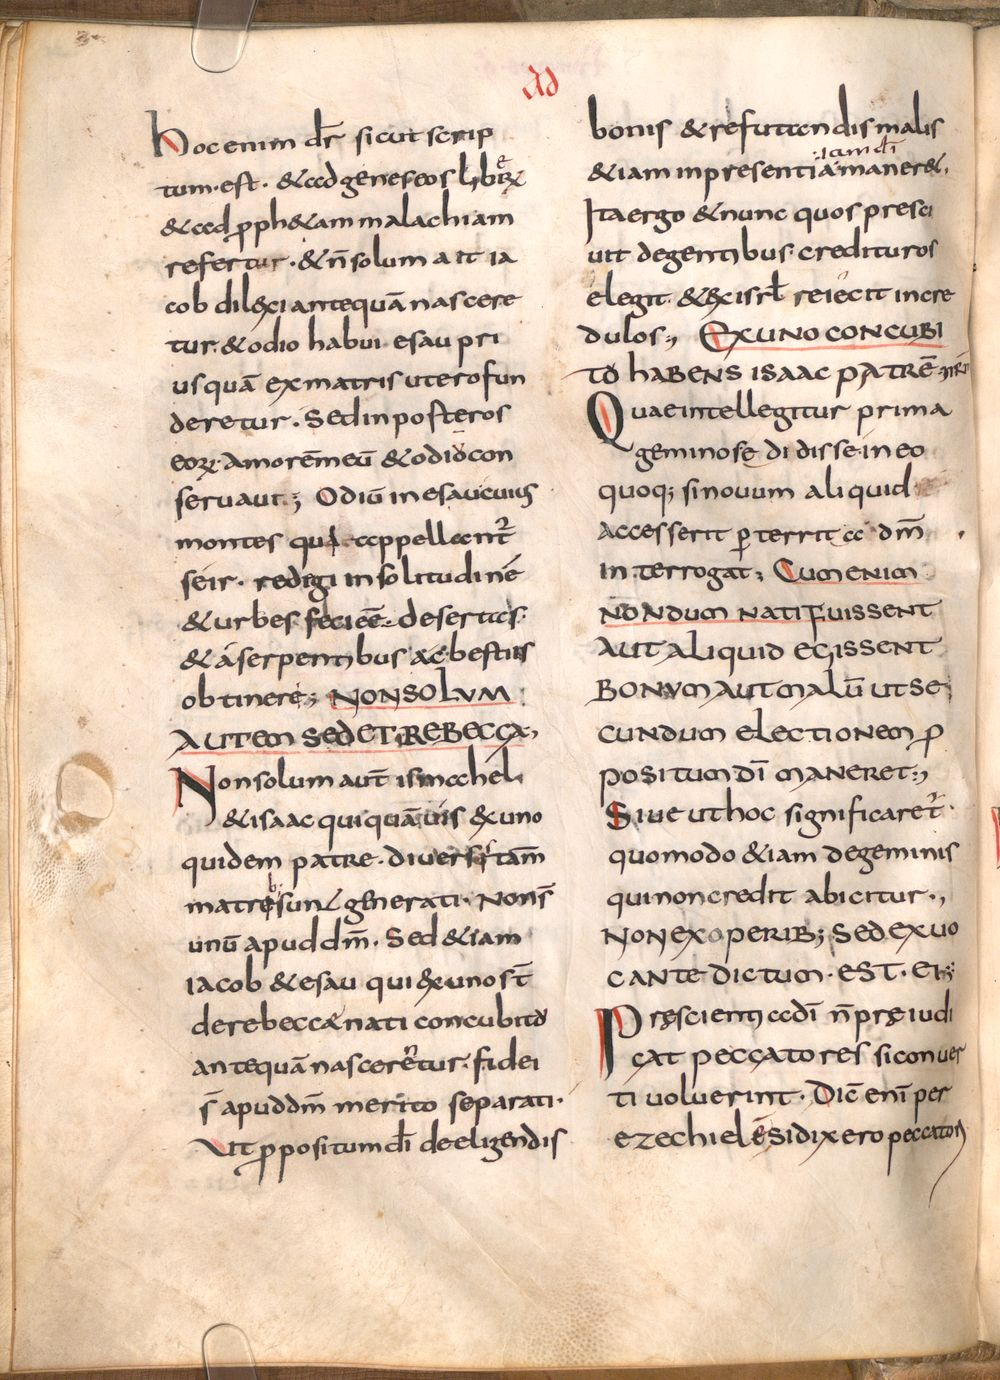 Ad
Hoc enim dr̄ sicut scrip
tum·est· & ad geneseos librū
& ad p̱ph&am malachiam
refertur·& n̄ solum ait ia
cob dilexi antequā nascere
tur·& odio habui esau pri
usquā ex matris utero fun
deretur. Sed in posteros
eoꝝ·amorē meū & odiū con
seruaui; Odiū in esau cuius
montes qui appellant᷑
seir· redegi in solitudinē
& urbes deserticis·
& a serpentibus ac bestiis
obtinere; NON SOLVM
AUTEM SED ET REBECCA,
Non solum aut̄ ismahel,
& isaac qui quāuis ex uno
quidem patre· diuersis tam̄
matrib; sunt generati· Non s̄
unū apud dm̄· Sed & iam
iacob & esau qui ex uno s̄t
de rebecca nati concubitu
antequā nascerētur· fidei
s̄ apud dm̄ merito separati·
Ut p̱positum dī de eligendis
bonis & refutandis malis
iam dī
& iam in presentia maner&,
Ita ergo & nunc quos presci
uit de gentibus· credituros
elegit· & ex isrl̄ reiecit incre
dulos; EX UNO CONCUBI
TU HABENS ISAAC PATRĒ nr̄i
Quae intellegitur prima
geminos edidisse· in eo
quoq; si nouum aliquid
accesserit p̱territa dm̄
interrogat; CUM ENIM
NONDUM NATI FUISSENT
AUT ALIQUID EGISSENT
BONUM AUT MALŪ UT SE
CUNDUM ELECTIONEM P̱
POSITUM DĪ MANERET;
Siue ut hoc significaret᷑·
quomodo & iam de geminis
qui non credit abicitur·,
NON EX OPERIB; SED EX UO
CANTE DICTUM· EST· EI;
Prescientia dī n̄ preiudi
cat peccatores si conuer
ti uoluerint· Dic̄ enī per
ezechiel· Et si dixero peccatori